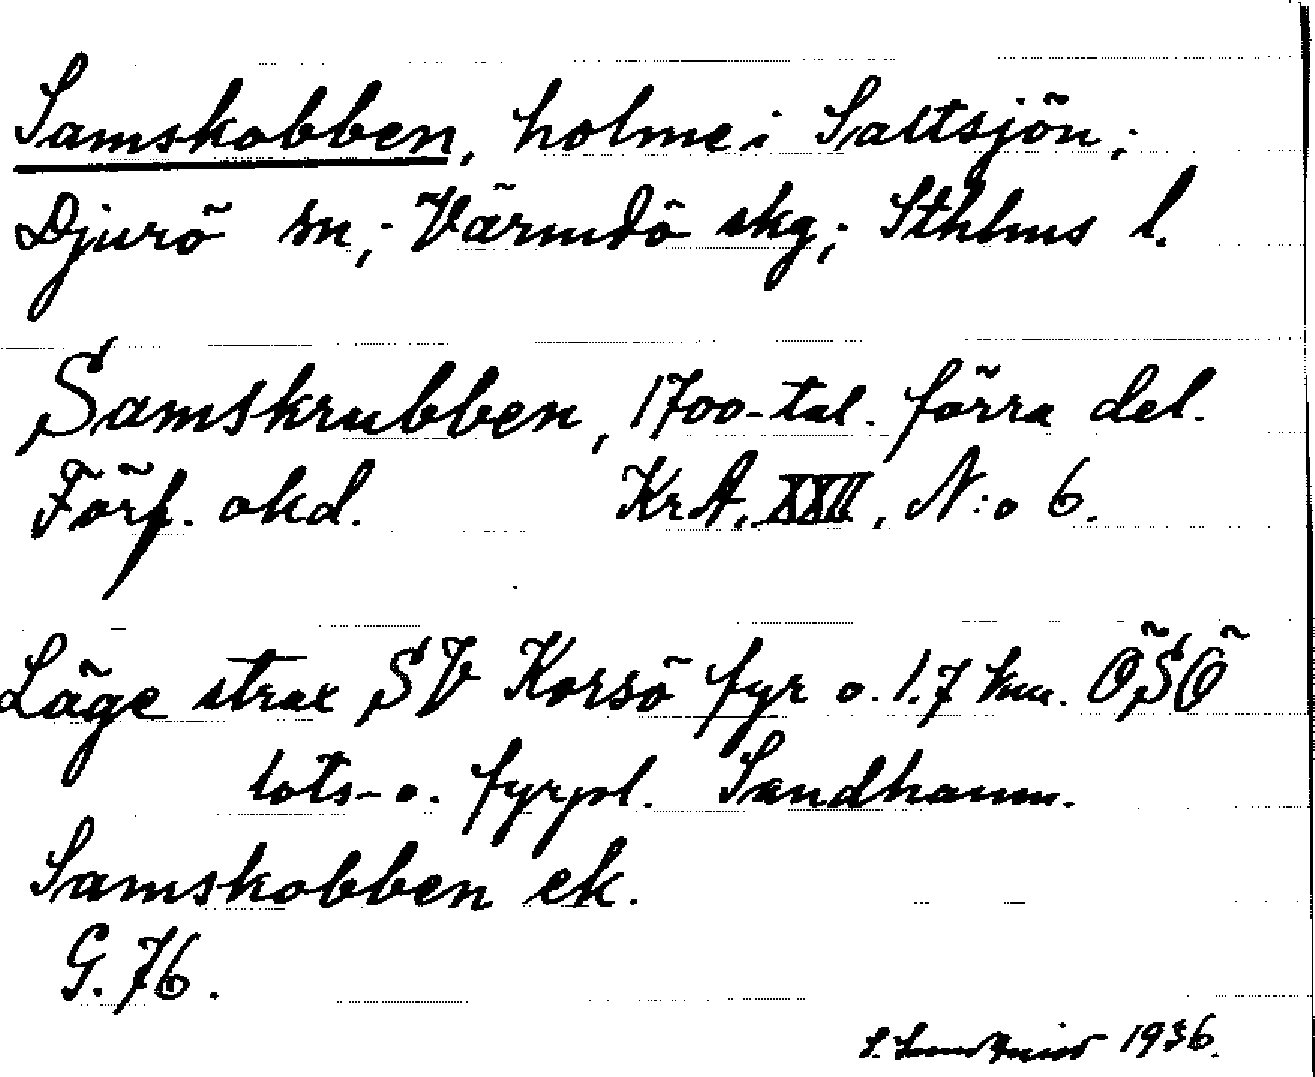 Samskobben, holme i Saltsjön;
Djurö sn; Värmdö skg; Sthlms l.
Samskrubben, 1700-tal. förra del.
Förf. okd. KrA. XXII, N:o 6.
Läge strax SV Korsö fyr o. 1.7 km. ÖSÖ
lots- o. fyrpl. Sandhamn.
Samskobben ek.
G. 76.
1936.